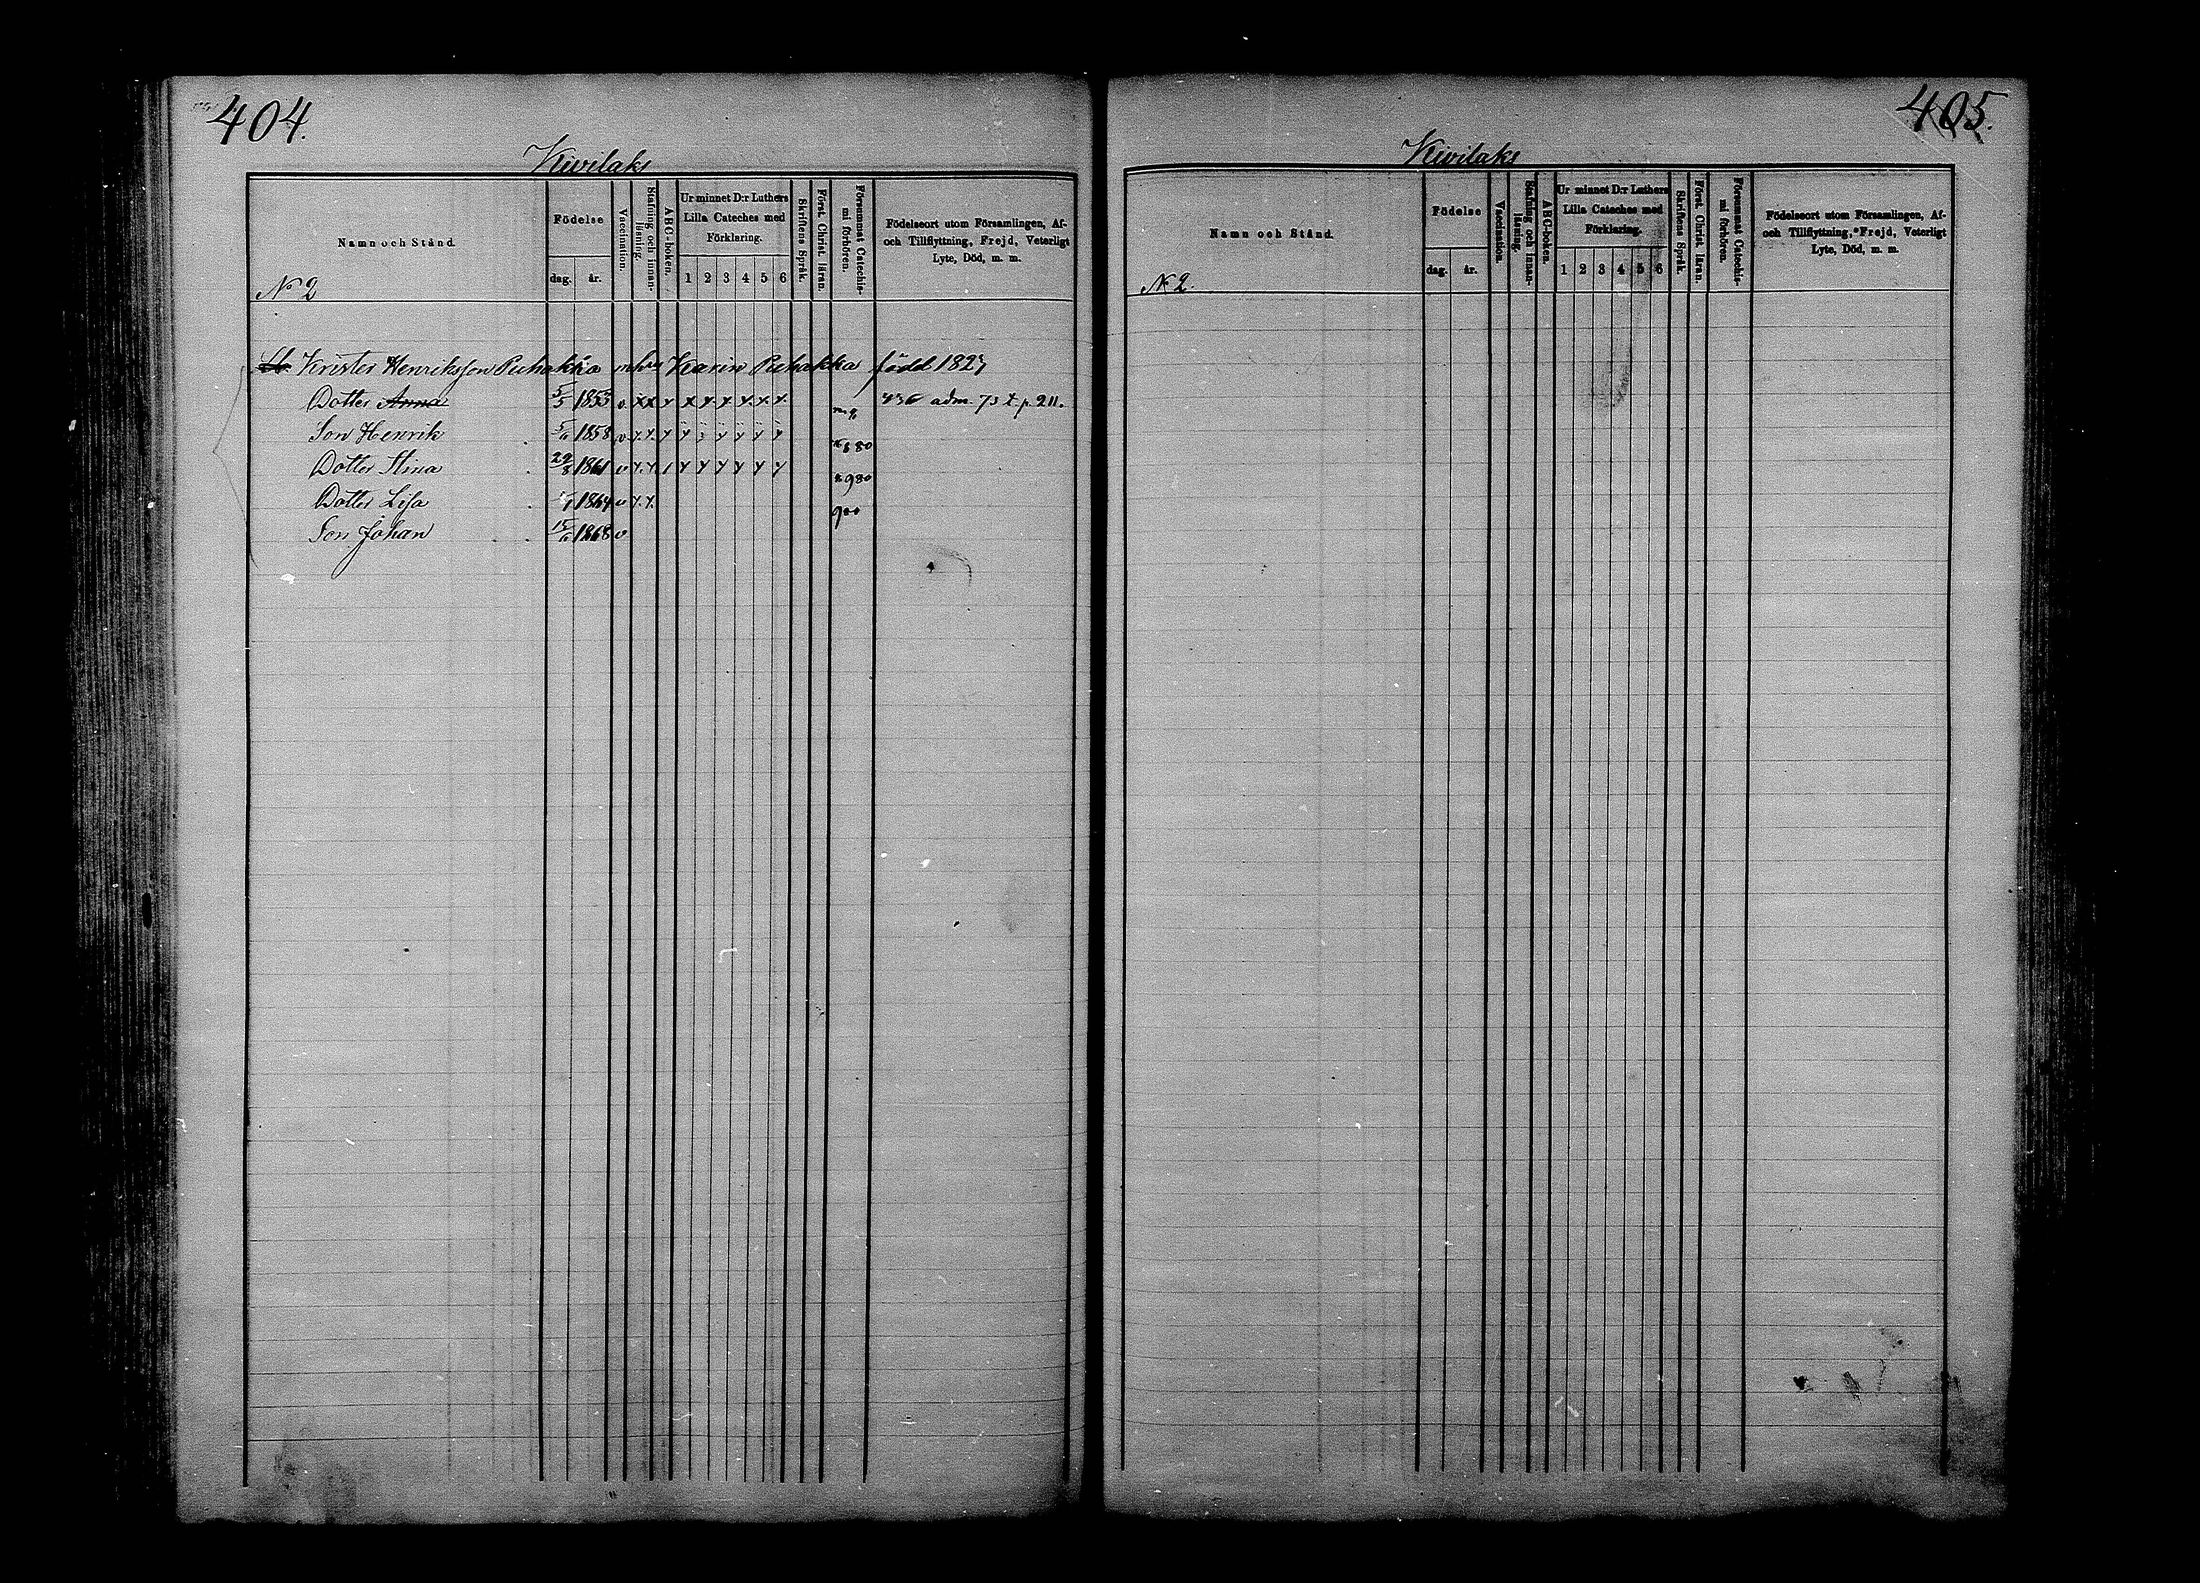 404.
Kivilaks
Namn och Stånd.
Födelse
dag. år.
Vaccination.
Stafning och innanläsning.
ABC-boken.
Ur minnet D:r Luthers Lilla Cateches med Förklaring.
1 2 3 4 5 6
Skriftens Språk.
Först. Christ. läran.
Försummat Catechismi förhören.
Födelseort utom Församlingen, Af- och Tillflyttning, Frejd, Veterligt Lyte, Död, m. m.
N° 2
Krister Henriksson Puhakka m hu Karin Puhakka född 1827
Dotter Anna 5/5 1853 v. x x x x x x x x x adm. 73 t p. 211.
Son Henrik 1858 v. 80
Dotter Stina 29/8 1861 v 980
Dotter Lisa 1864 v x. x. 900
Son Johan 15/6 1868 v
405.
Kivilaks
Namn och Stånd.
Födelse
dag. år.
Vaccination.
Stafning och innanläsning.
ABC-boken.
Ur minnet D:r Luthers Lilla Cateches med Förklaring.
1 2 3 4 5 6
Skriftens Språk.
Först. Christ. läran.
Försummat Catechismi förhören.
Födelseort utom Församlingen, Af- och Tillflyttning, Frejd, Veterligt Lyte, Död, m. m.
N° 2.